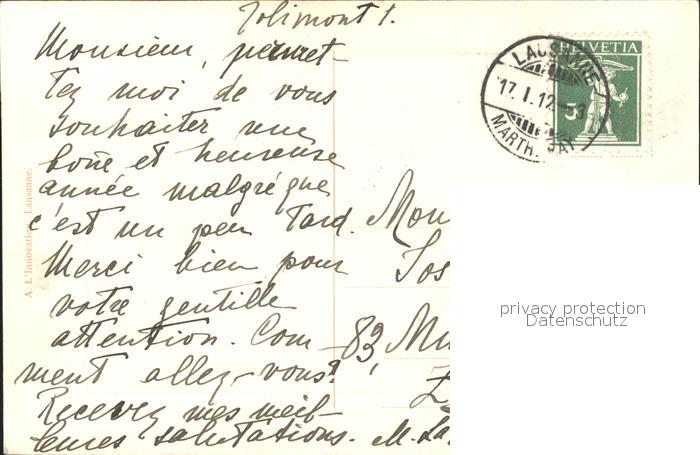 Jolimont 1.
Monsieur, permet-
tez moi de vous
souhaiter une
bone et heureuse
année malgré que
c'est un peu tard.
Merci bien pour
votre gentille
attention. Com-
ment allez-vous?
Recevez mes meil-
leures salutations. M. La
Mon
Jos
83, Mu
Z
HELVETIA
5
LAUSANNE
17. I. 12
MARTH
A. L'Innovation, Lausanne.
privacy protection
Datenschutz